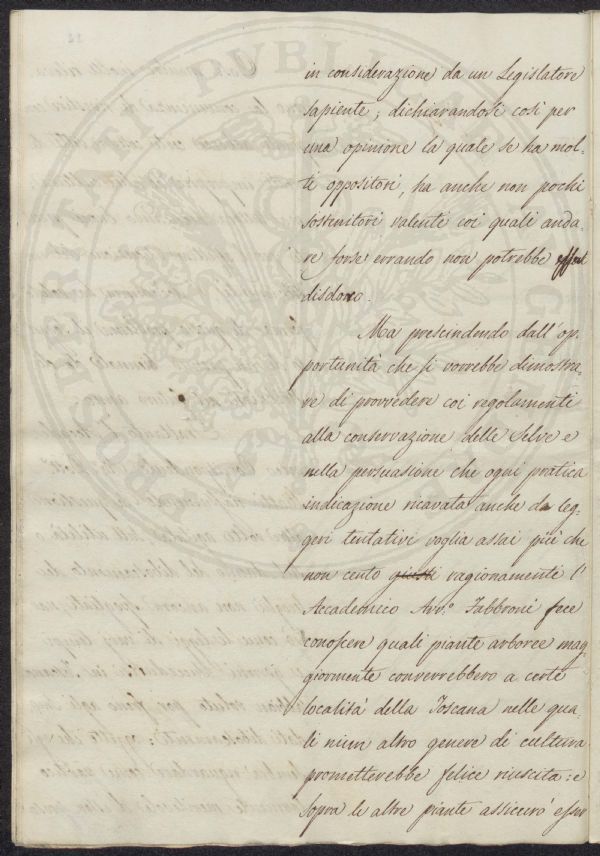 in considerazione da un Legislatore
sapiente; dichiarandosi così per
una opinione la quale se ha mol-
ti oppositori, ha anche non pochi
sostenitori valenti coi quali anda-
re forse errando non potrebbe esser
disdoro.
Ma prescindendo dall'op-
portunità che si vorrebbe dimostra-
re di provvedere coi regolamenti
alla conservazione delle Selve e
nella persuasione che ogni pratica
indicazione ricavata anche da leg-
geri tentativi voglia assai più che
non cento giusti ragionamente l'
Accademico Avv.o Fabbroni fece
conoscere quali piante arboree mag-
giormente converrebbero a certe
località della Toscana nelle qua-
li niun altro genere di cultura
prometterebbe felice riuscita: e
sopra le altre piante assicurò esser